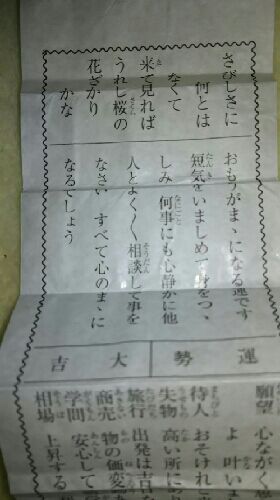 さびしさに
何とは
なくて
来て見れば
うれし桜の
花ざかり
かな
おもうがまゝになる運です
短気をいましめて身をつゝ
しみ何事にも心静かに他
人とよく〱相談して事を
なさい すべて心のまゝに
なるでしょう
運勢 大吉
願望 心ながく
よ 叶い
待人 おそけれ
失物 高い所に
旅行 出発は吉
商売 物の価変
学問 安心して
相場 上昇する